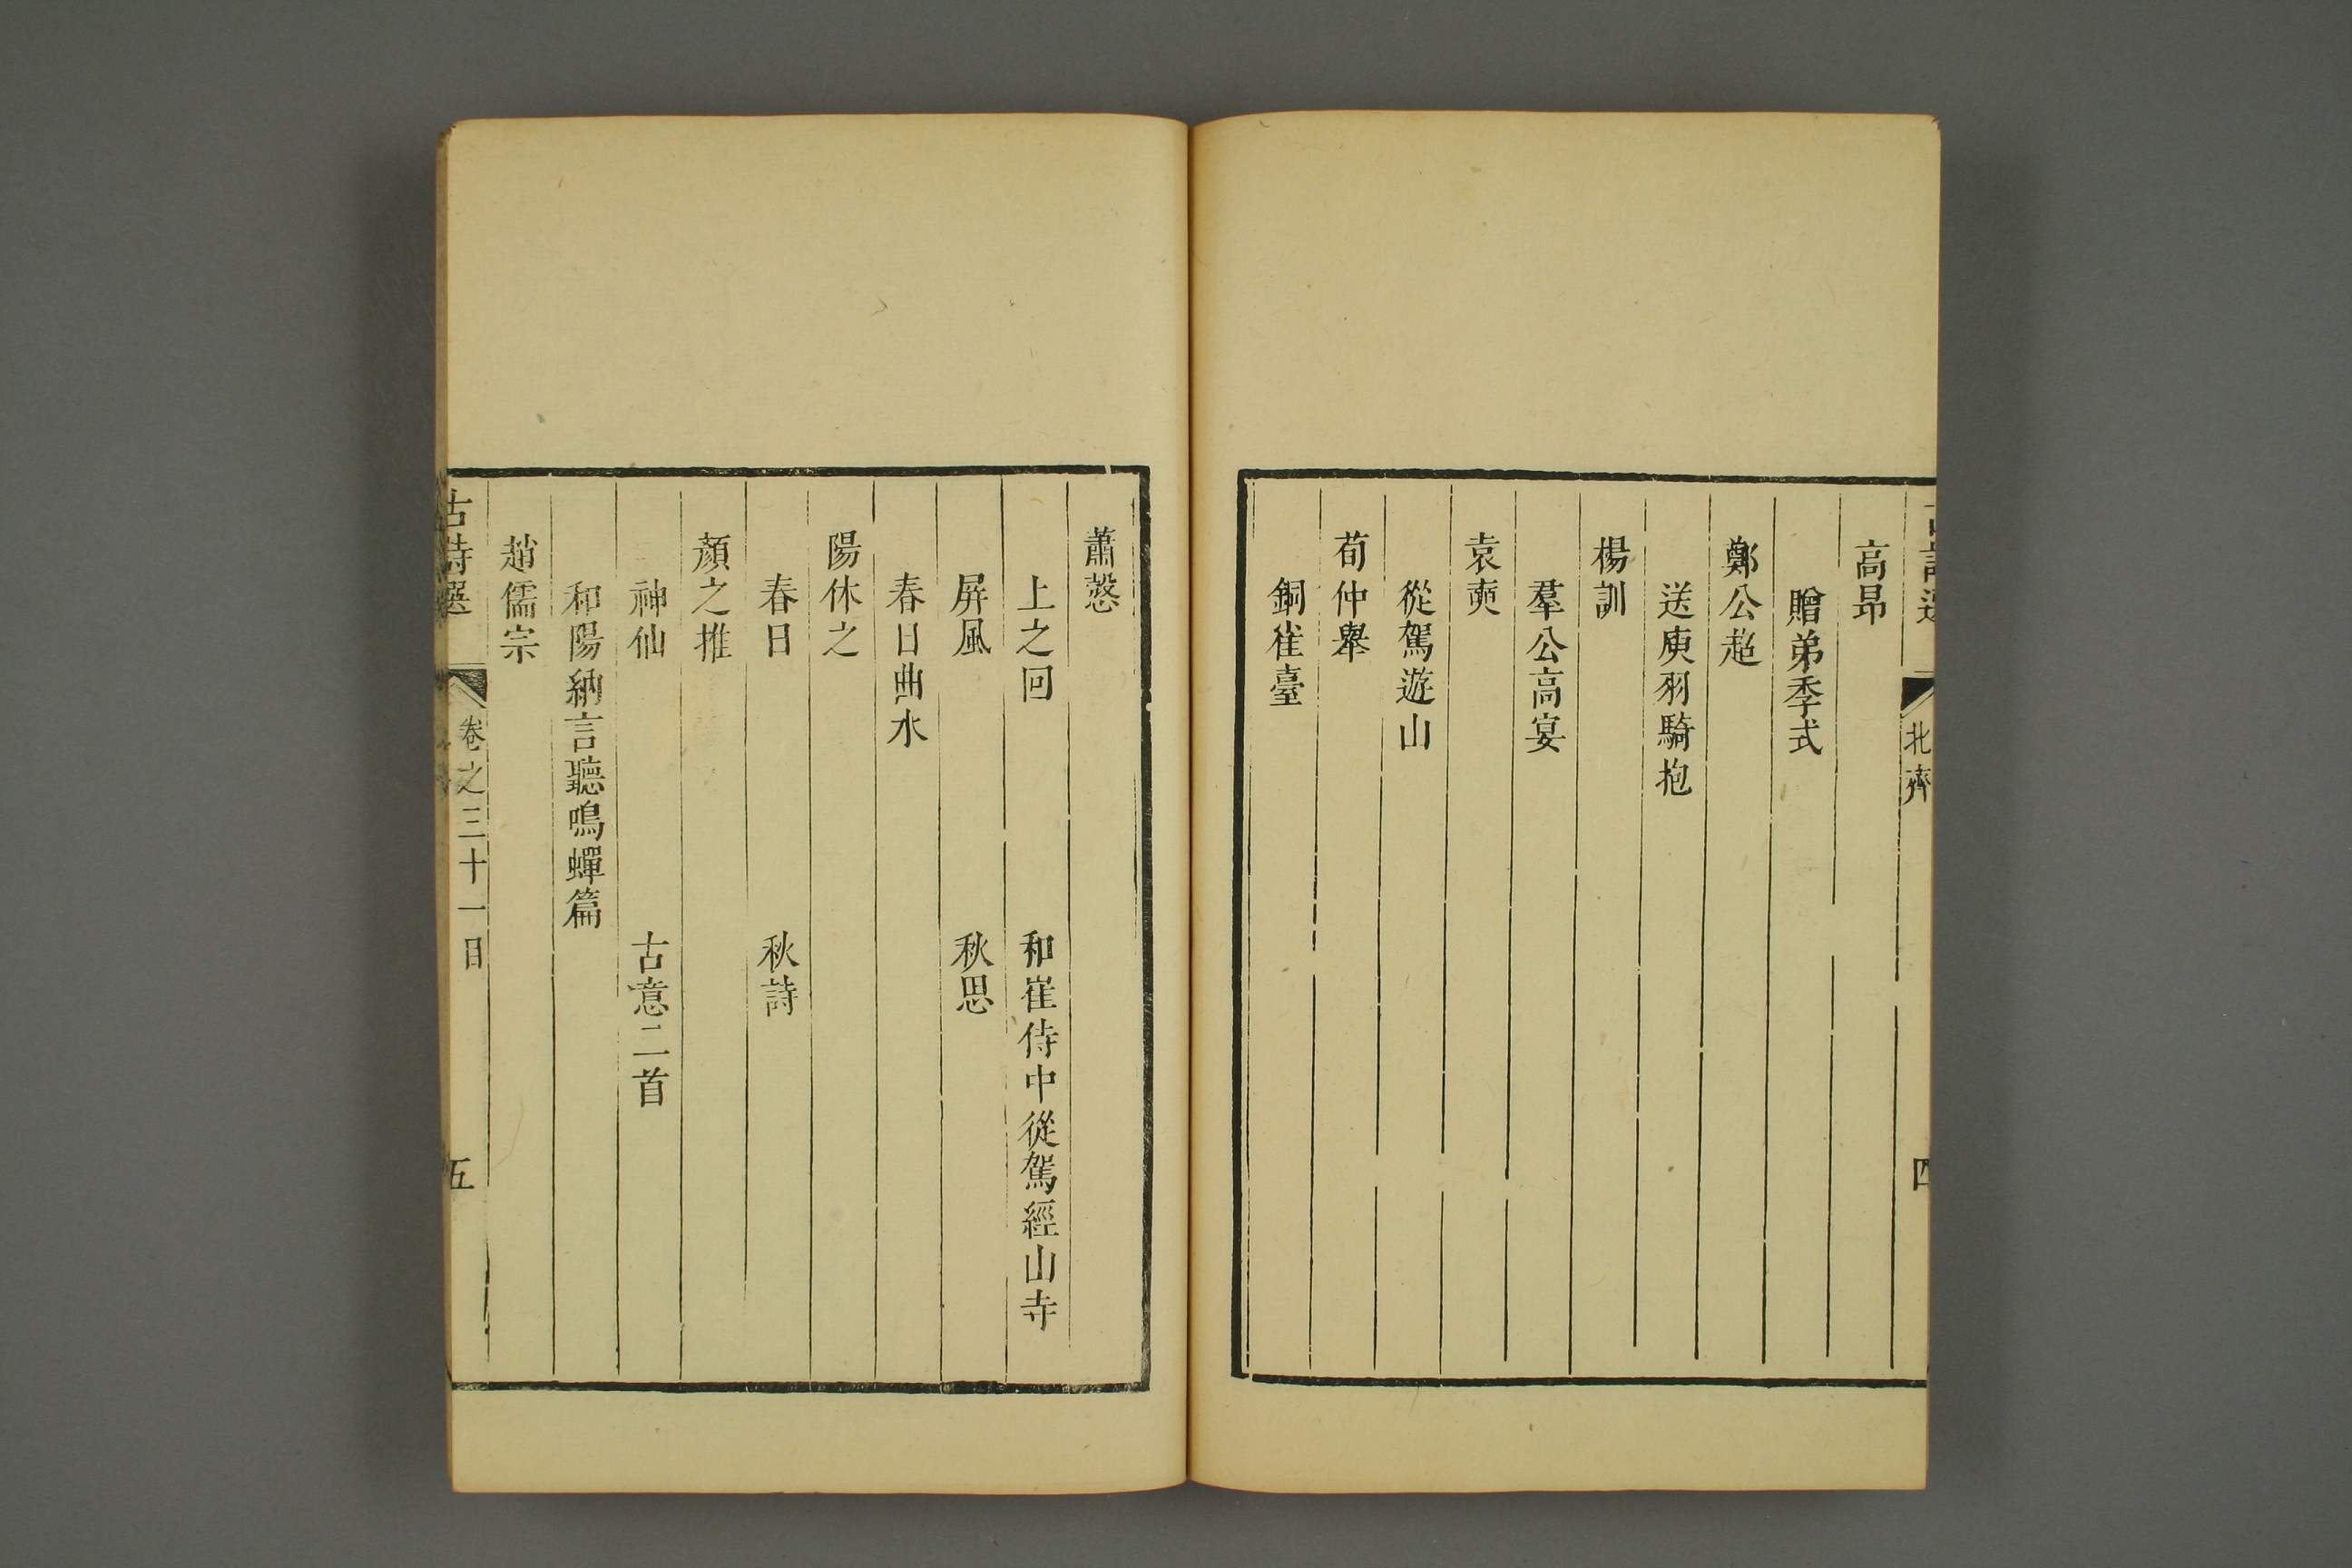 古詩選 北齊 四
高昂
贈弟季式
鄭公超
送庾羽騎抱
楊訓
羣公高宴
袁奭
從駕遊山
荀仲舉
銅雀臺
蕭愨
上之回 和崔侍中從駕經山寺
屏風 秋思
春日曲水
陽休之
春日 秋詩
顏之推
神仙 古意二首
和陽納言聽鳴蟬篇
趙儒宗
古詩選 卷之三十一目 五